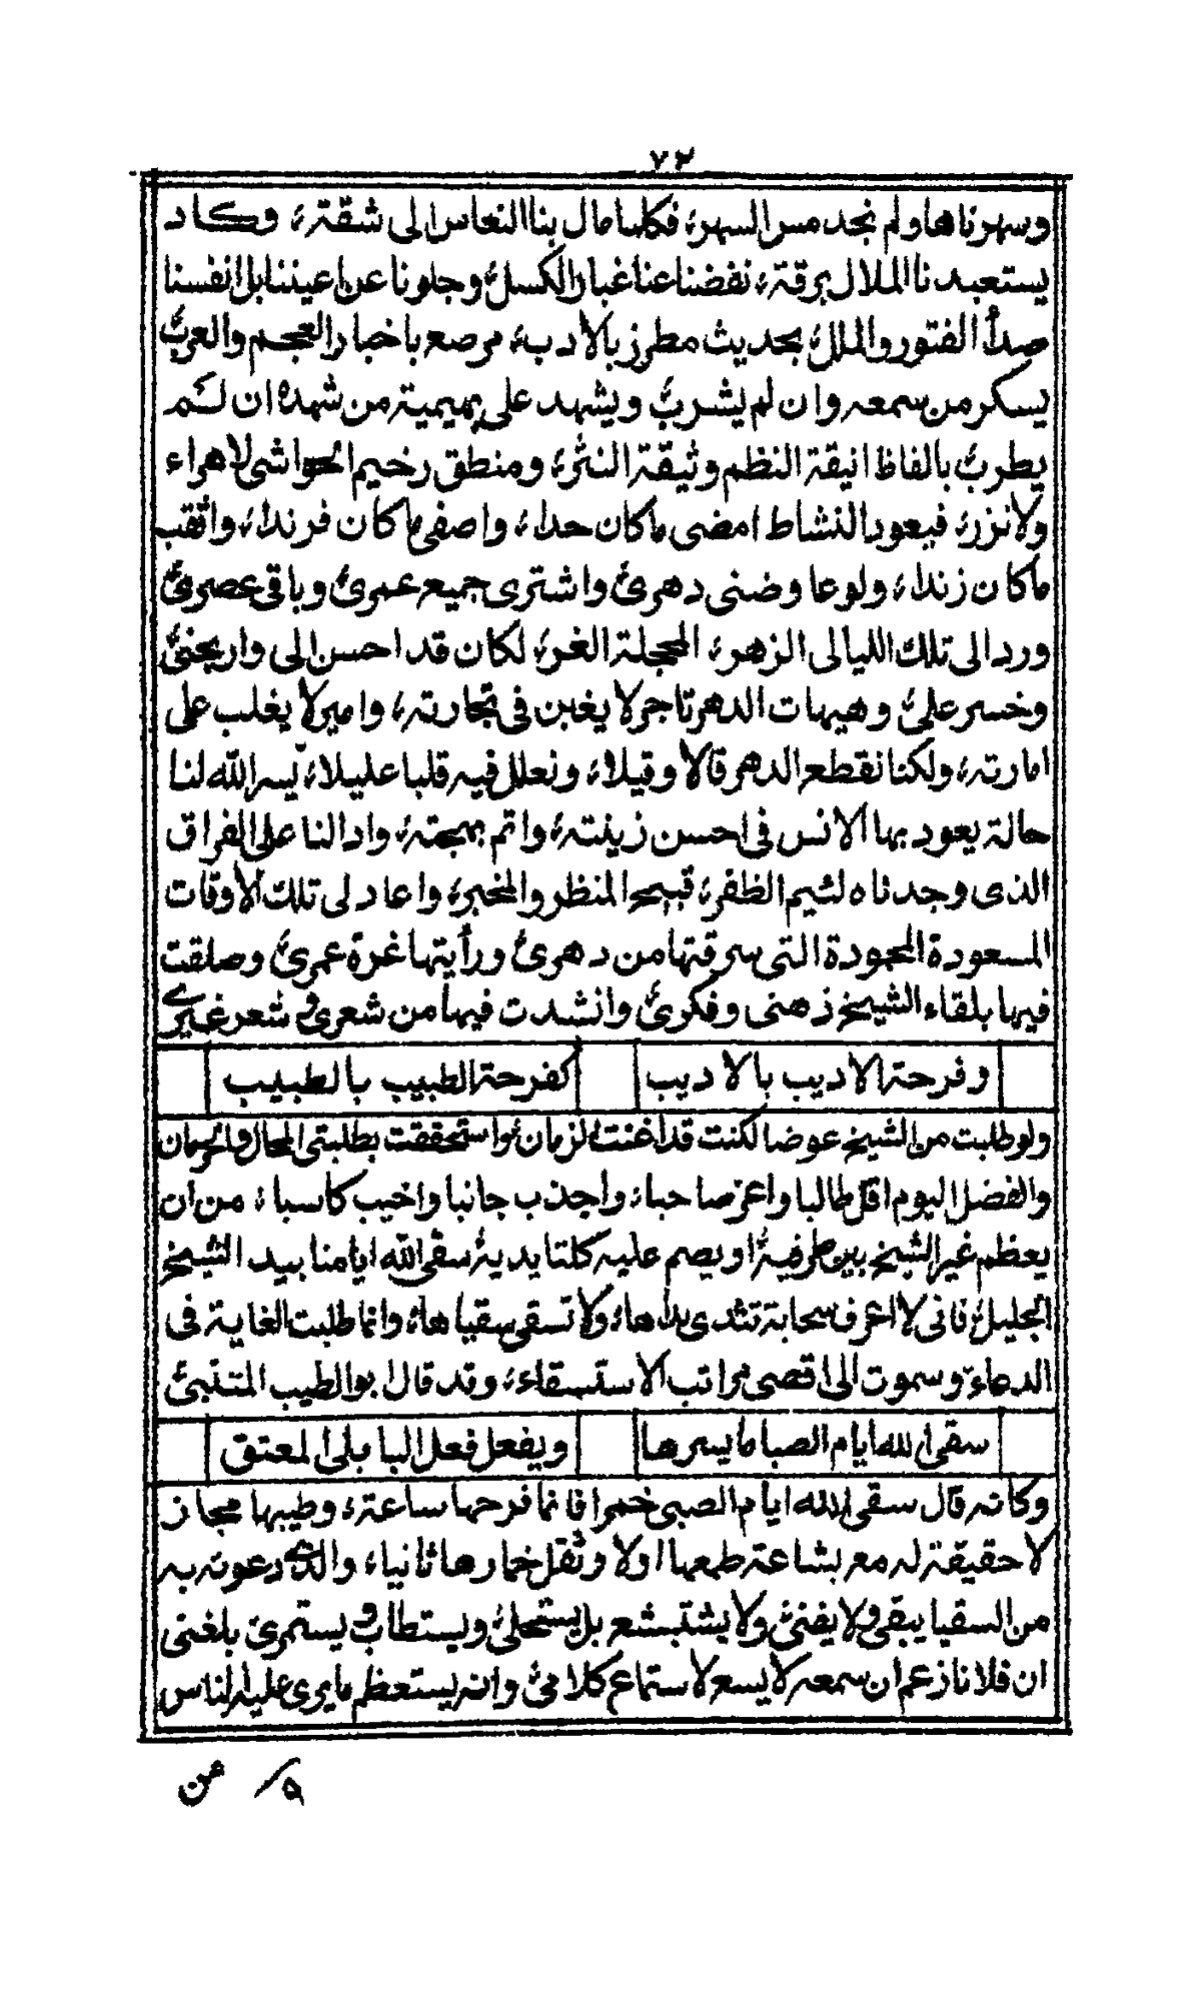 ٧٢
وسهرناها ولم نجد مس السهر، فكلما مال بنا النعاس الى شقته، وكاد
يستعبدنا الملال برقته، نفضنا عنا غبار الكسل، وجلونا عن اعيننا بل انفسنا
صدأ الفتور والملل، بحديث مطرز بالادب، مرصع باخبار العجم والعرب،
يسكر من سمعه وان لم يشرب، ويشهد على بهيمية من شهده ان لم
يطرب، بالفاظ انيقة النظم وثيقة النثر، ومنطق رخيم الحواشى لاهراء
ولانزر، فيعود النشاط امضى ماكان حدا، واصفى ماكان فرندا، واثقب
ماكان زندا، ولو عاوضنى دهرى، واشترى جميع عمرى، وباقى عصرى،
ورد الى تلك الليالى الزهر، المحجلة الغر، لكان قد احسن الى واربحنى،
وخسر على، وهيهات الدهر تاجر لا يغبن فى تجارته، وامير لا يغلب على
امارته، ولكنا نقطع الدهر قالا وقيلا، ونعلل فيه قلبا عليلا، يسر الله لنا
حالة يعود بها الانس فى احسن زينته، واتم بهجته، وادالنا على الفراق
الذى وجدناه لئيم الظفر، قبيح المنظر والمخبر، واعاد لى تلك الاوقات
المسعودة المحمودة التى سرقتها من دهرى، ورأيتها غرة عمرى، وصلقت
فيها بلقاء الشيخ ذهنى وفكرى، وانشدت فيها من شعرى و شعر غيرى
وفرحة الاديب بالاديب كفرحة الطبيب بالطبيب
ولو طلبت من الشيخ عوضا لكنت قد اغنت الزمان، واستحققت بطلبتى المحال والحرمان
والفضل اليوم اقل طالبا واعز صاحبا، واجذب جانبا واخيب كاسبا، من ان
يعظم غير الشيخ بين طرفيه، او يصم عليه كلتا يديه، سقى الله ايامنا بيد الشيخ
الجليل، فانى لا اعرف سحابة تندى نداها، ولا تسقى سقياها، وانما طلبت الغاية فى
الدعاء، وسموت الى اقصى مراتب الاستسقاء، وقد قال ابو الطيب المتنبئ
سقى الله ايام الصبا ما يسرها ويفعل فعل البابلى المعتق
وكانه قال سقى الله ايام الصبى خمرا فانما فرحها ساعة، وطيبها مجاز
لا حقيقة له مع بشاعة طعمها اولا وثقل خمارها ثانيا، والذى دعوته به
من السقيا يبقى ولا يفنى، ولا يشتبشع بل يستحلى، ويستطاب و يستمرئ بلغنى
ان فلانا زعم ان سمعه لا يسع لاستماع كلامى، وانه يستعظم ما يرى عليه الناس
٩/ من